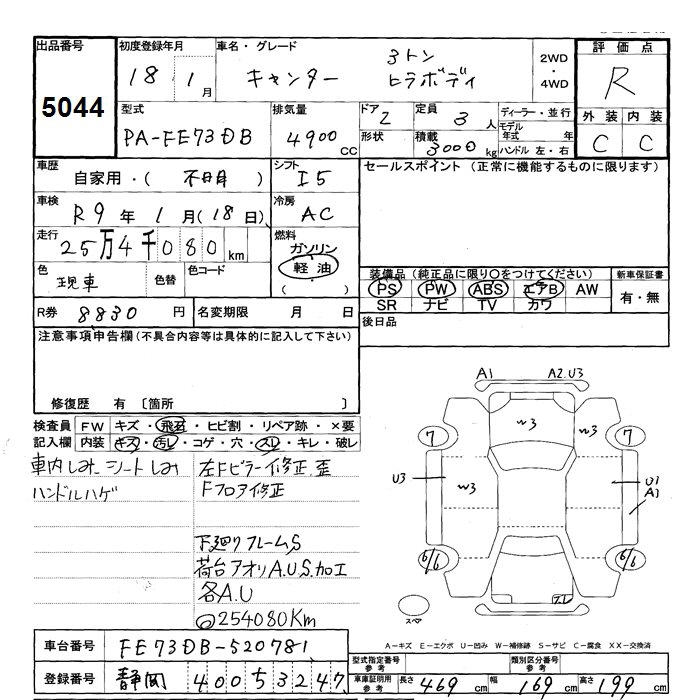 出品番号 初度登録年月 車名・グレード 評価点
5044 18 1月 キャンター 3トン ヒラボディ 2WD・4WD R
型式 排気量 ドア 定員 ディーラー・並行 外装 内装
PA-FE73DB 4900CC 2 3人 モデル年式 年 C C
形状 積載 3000kg ハンドル 左・右
車歴 シフト セールスポイント (正常に機能するものに限ります)
自家用・( 不明 ) I5
車検 冷房
R9年1月(18日) AC
走行 燃料
25万4千080km ガソリン
色 色替 色コード 軽油
現車 ( )
装備品 (純正品に限り○をつけてください) 新車保証書
PS PW ABS エアB AW 有・無
SR ナビ TV カワ
R券 8830円 名変期限 月 日 後日品
注意事項申告欄(不具合内容等は具体的に記入して下さい)
修復歴 有 〔箇所 〕
検査員 FW キズ・飛石・ヒビ割・リペア跡・×要
記入欄 内装 キズ・汚れ・コゲ・穴・スレ・キレ・破レ
車内しみ シートしみ
ハンドルハゲ
左Fピラー修正 歪
Fフロア修正
下廻りフレームS
荷台アオリA.U.S.加工
各A.U
◎254080Km
A1 A2.U3
W3 W3
7 7
U3 W3 U1
A1
6/6 6/6
スペア スレ
A-キズ E-エクボ U-凹み W-補修跡 S-サビ C-腐食 XX-交換済
車台番号 FE73DB-520781
登録番号 静岡 400 5 3247
型式指定番号 参考 類別区分番号 参考
車庫証明用 参考 長さ 469cm 幅 169cm 高さ 199cm